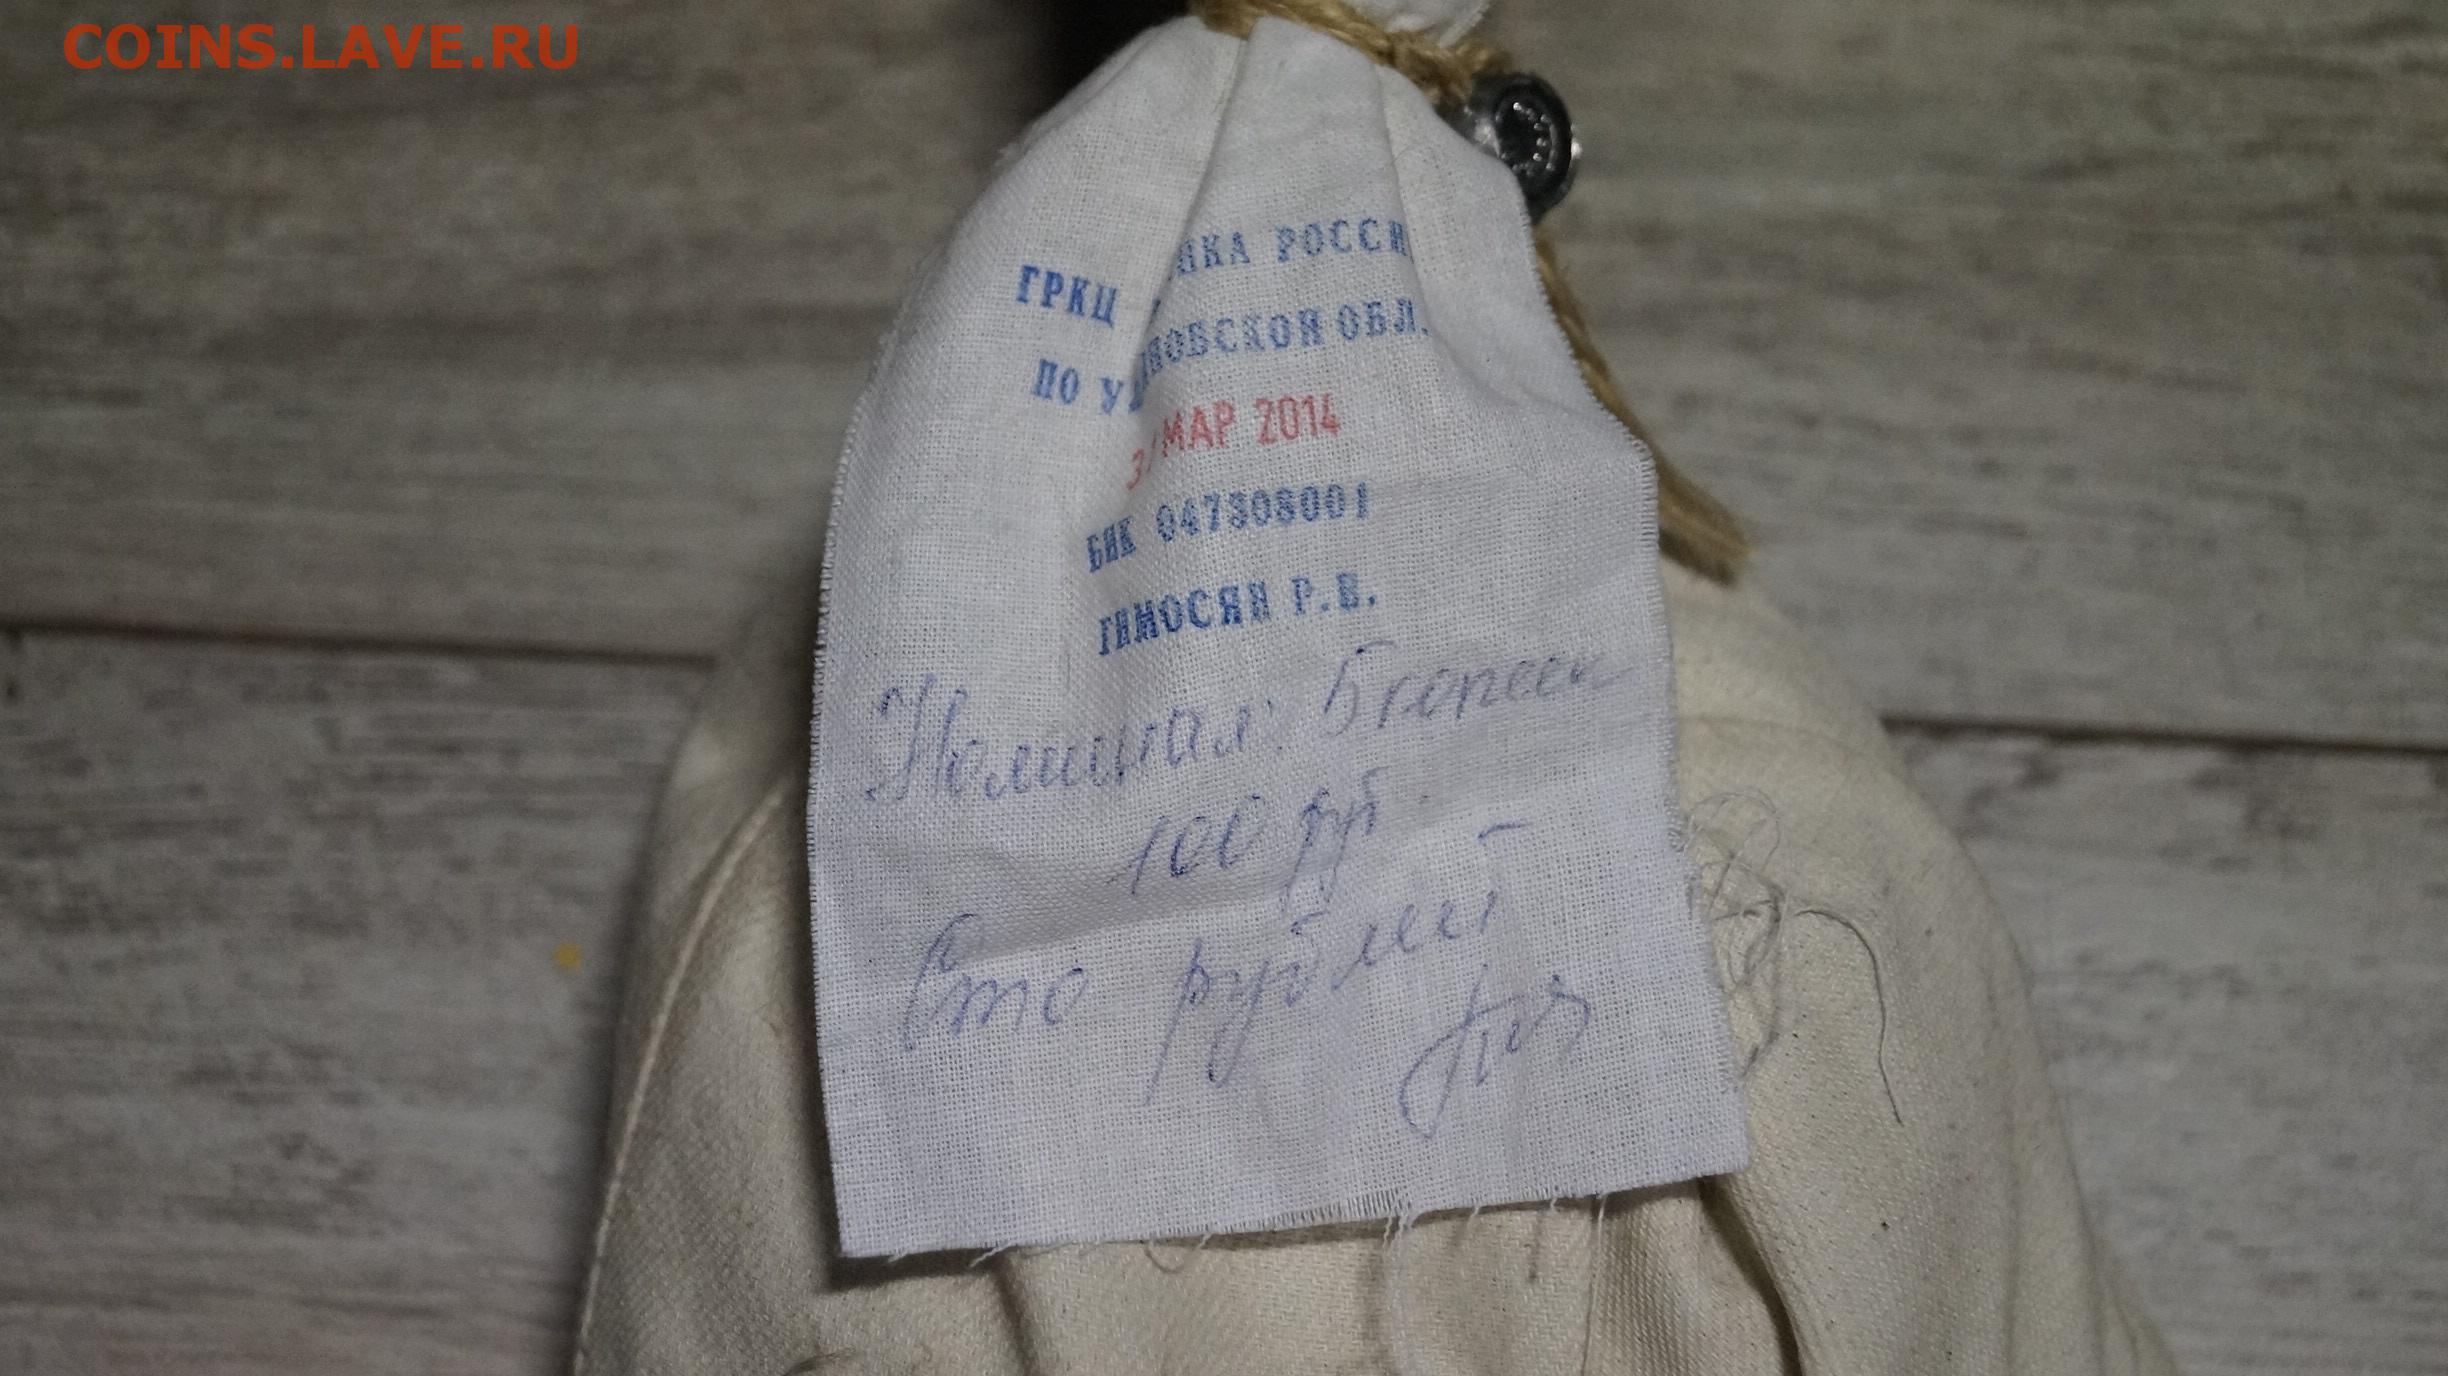 COINS.LAVE.RU
ГРКЦ НКА РОССИ
ПО У НОВСКОЙ ОБЛ.
МАР 2014
БИК 047308001
ГИМОСЯН Р.В.
Номинал: 5 копеек
100 руб
Сто рублей